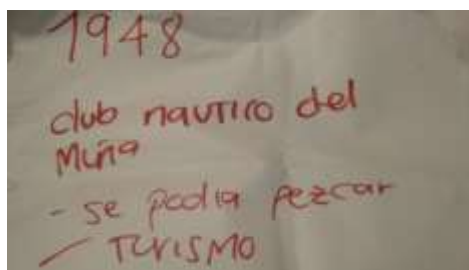 1948
club nautico del
Muña
- se podia pezcar
- TURISMO